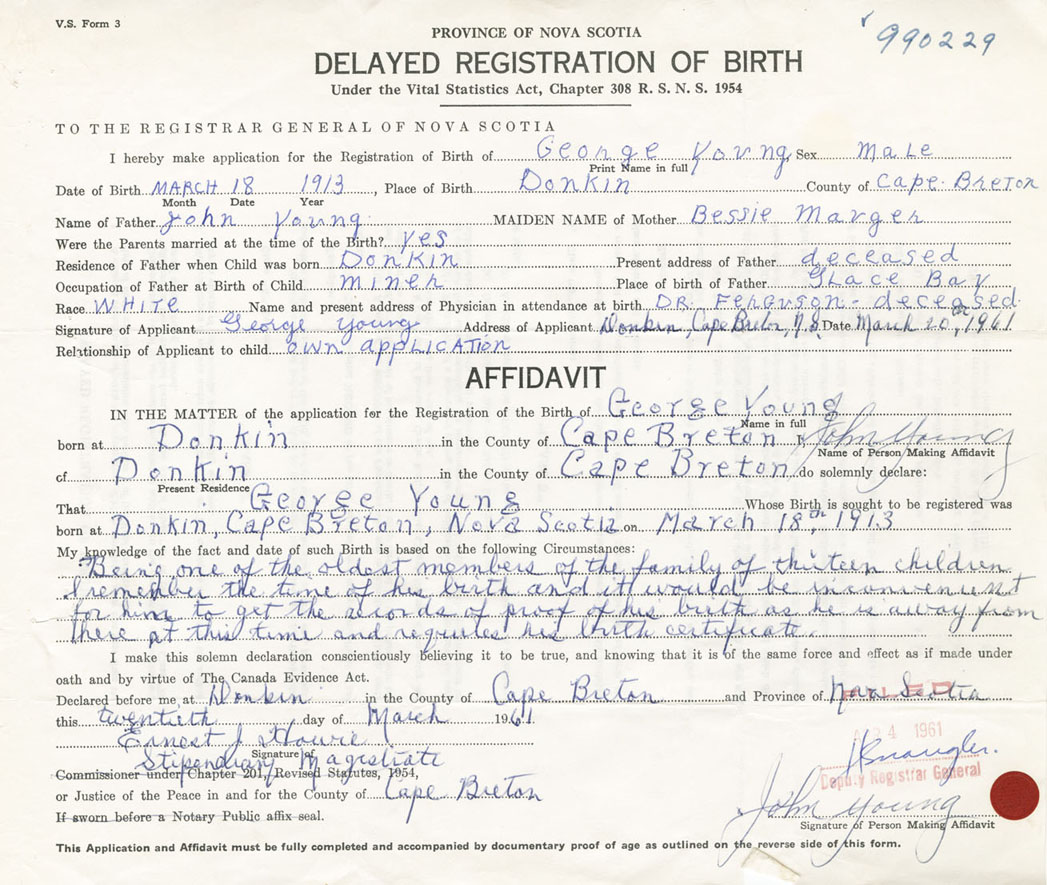 V.S. Form 3
990229
PROVINCE OF NOVA SCOTIA
DELAYED REGISTRATION OF BIRTH
Under the Vital Statistics Act, Chapter 308 R. S. N. S. 1954
TO THE REGISTRAR GENERAL OF NOVA SCOTIA
I hereby make application for the Registration of Birth of George Young, Sex Male
Print Name in full
Date of Birth MARCH 18 1913, Place of Birth Donkin County of Cape Breton
Month Date Year
Name of Father John Young MAIDEN NAME of Mother Bessie Marger
Were the Parents married at the time of the Birth? yes
Residence of Father when Child was born Donkin Present address of Father deceased
Occupation of Father at Birth of Child miner Place of birth of Father Glace Bay
Race WHITE Name and present address of Physician in attendance at birth DR. Ferguson - deceased
Signature of Applicant George Young Address of Applicant Donkin, Cape Breton, N.S. Date March 20th, 1961
Relationship of Applicant to child own application
AFFIDAVIT
IN THE MATTER of the application for the Registration of the Birth of George Young
Name in full
born at Donkin in the County of Cape Breton I, John Young
Name of Person Making Affidavit
of Donkin in the County of Cape Breton do solemnly declare:
Present Residence
That George Young Whose Birth is sought to be registered was
born at Donkin, Cape Breton, Nova Scotia on March 18th, 1913
My knowledge of the fact and date of such Birth is based on the following Circumstances:
Being one of the oldest members of the family of thirteen children
I remember the time of his birth and it would be inconvenient
for him to get the records of proof of his birth as he is away from
here at this time and requires his birth certificate.
I make this solemn declaration conscientiously believing it to be true, and knowing that it is of the same force and effect as if made under
oath and by virtue of The Canada Evidence Act.
Declared before me at Donkin in the County of Cape Breton and Province of Nova Scotia
this twentieth day of March 1961
Ernest J Howie
Signature of
Stipendiary Magistrate
Commissioner under Chapter 201, Revised Statutes, 1954,
or Justice of the Peace in and for the County of Cape Breton
If sworn before a Notary Public affix seal.
4 1961
Deputy Registrar General
John Young
Signature of Person Making Affidavit
This Application and Affidavit must be fully completed and accompanied by documentary proof of age as outlined on the reverse side of this form.